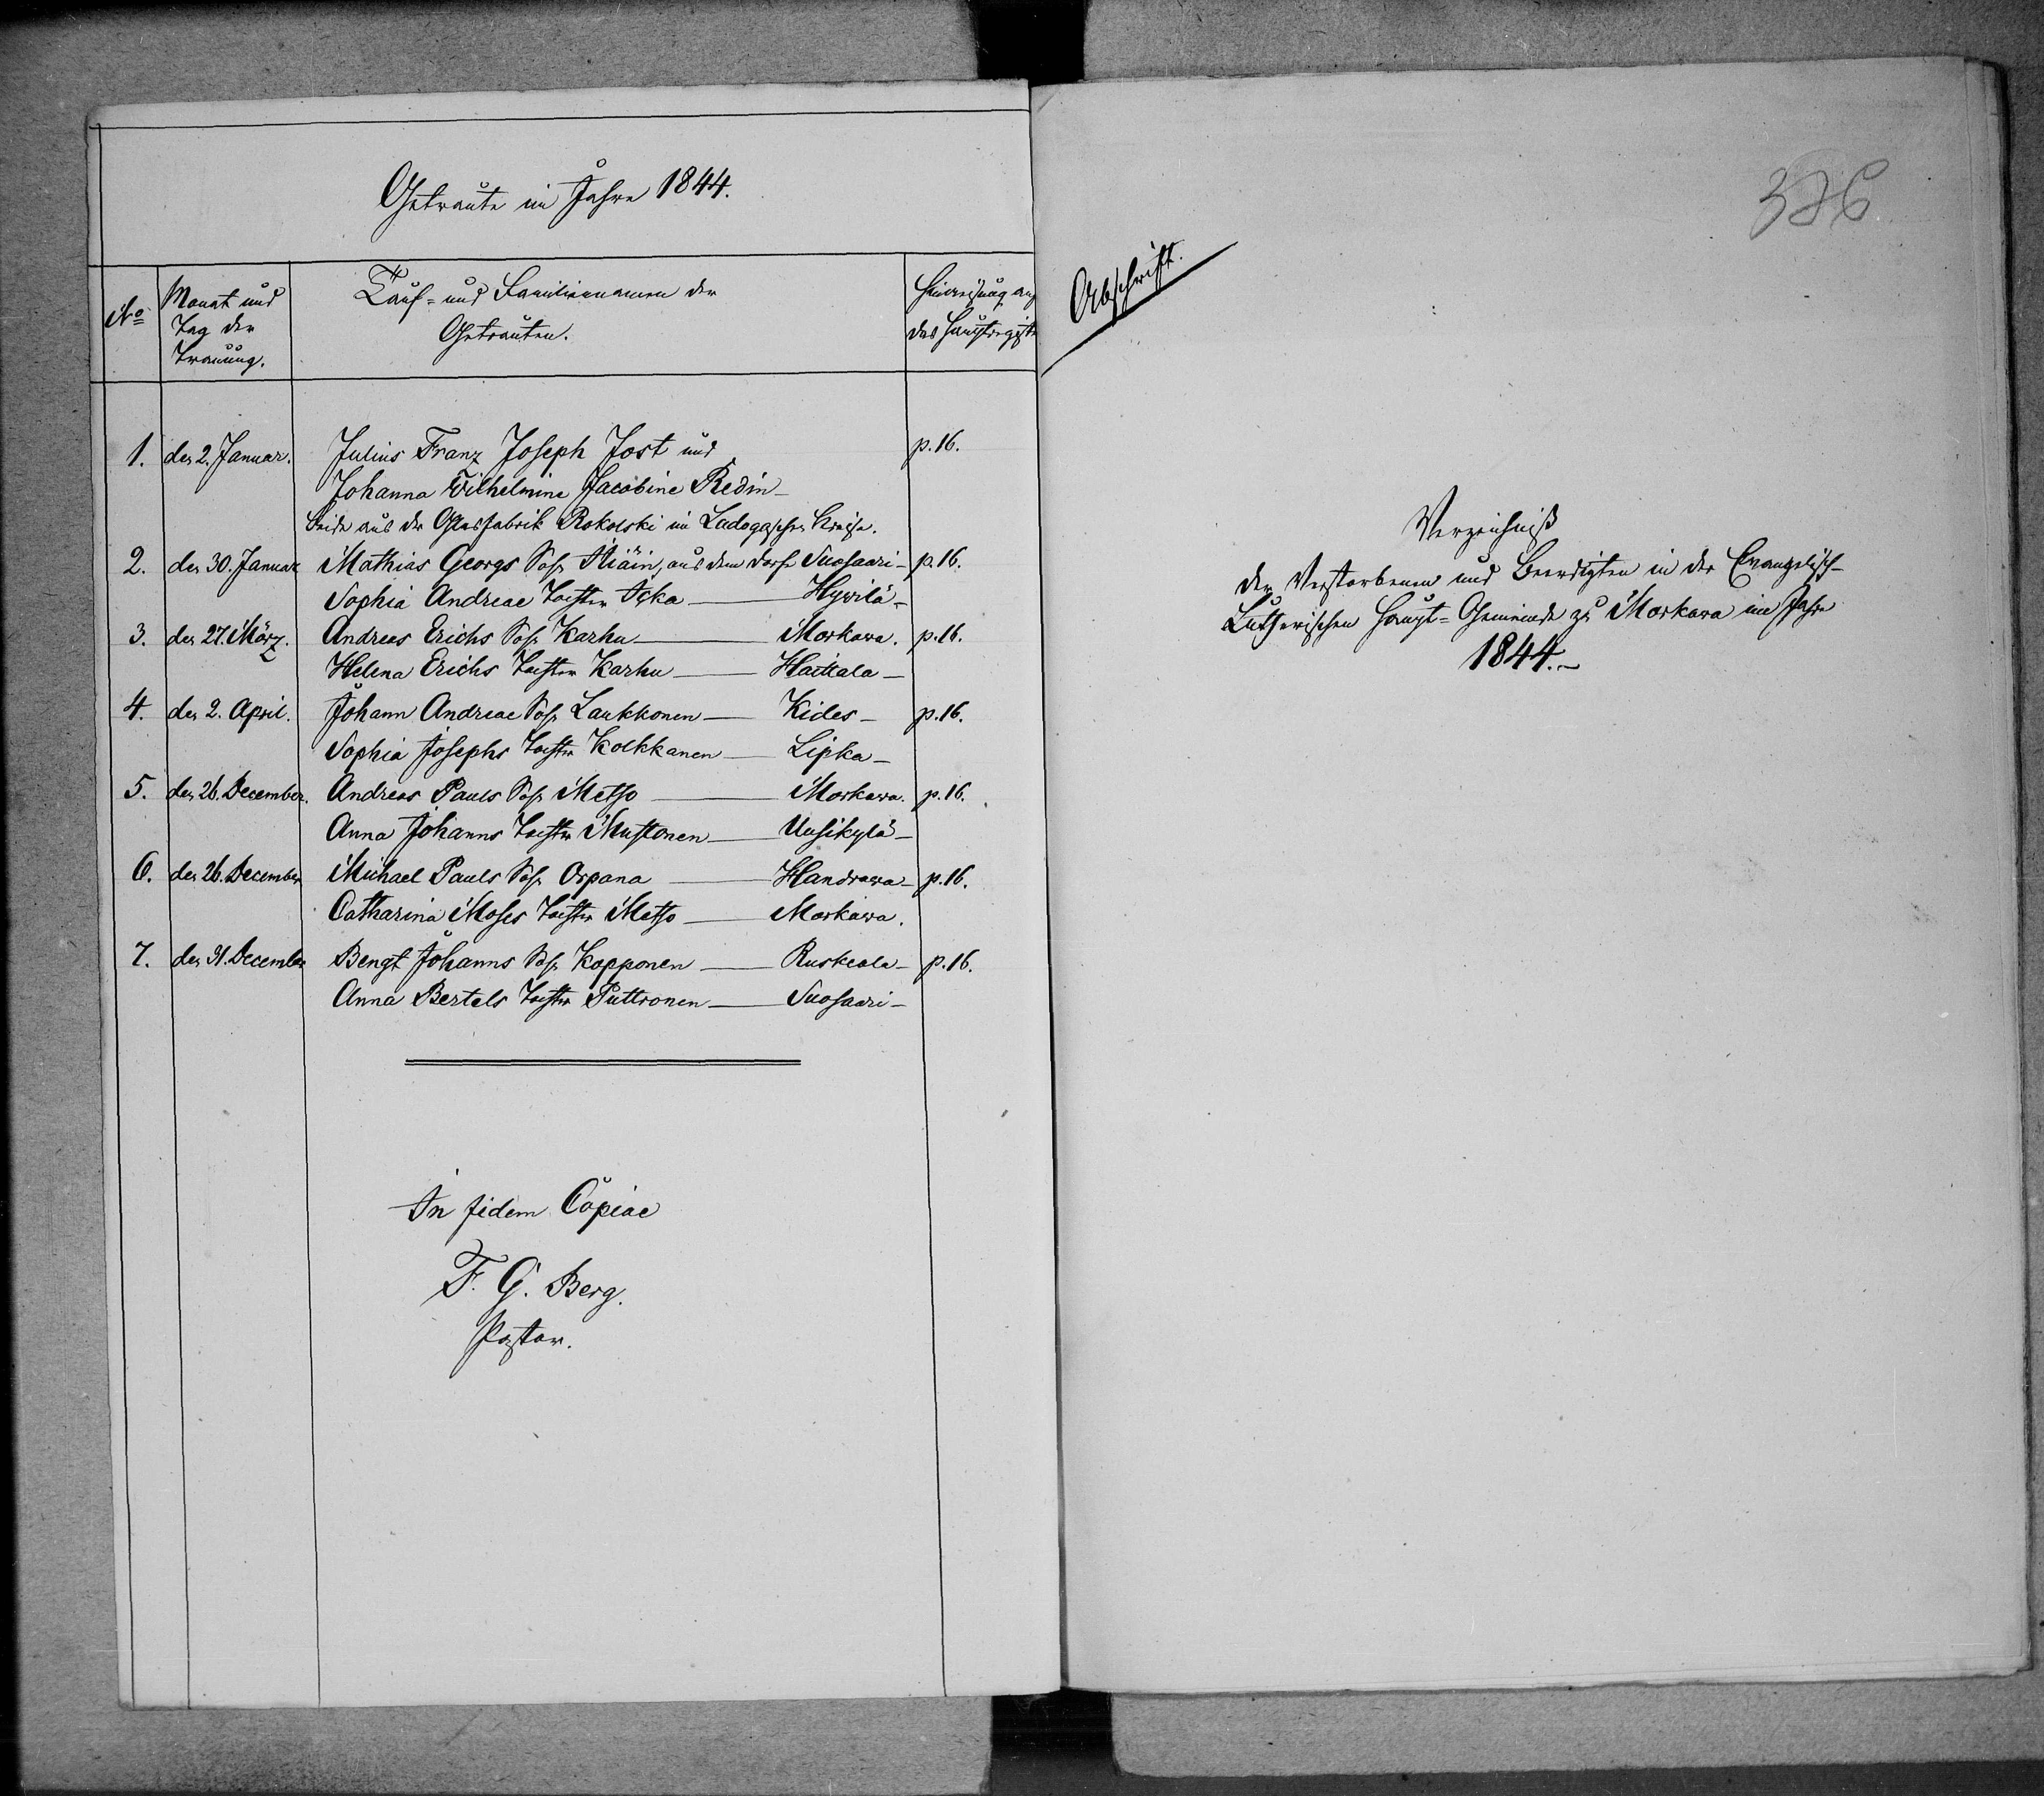 Getraute im Jahre 1844.
No
Monat und
Tag der
Trauung.
Tauf- und Familiennamen der
Getrauten.
Hinweisung auf
das Hauptregister
1. den 2. Januar. Julius Franz Joseph Jost und p. 16.
Johanna Wilhelmine Jacobine Redin
beide aus der Glasfabrik Rokolski im Ladogaschen Kreise.
2. den 30. Januar Mathias Georgs Sohn aus dem Dorfe Suosaari p. 16.
Sophia Andreae Tochter Hywilä
3. den 27. März. Andreas Erichs Sohn Karhu Morkawa. p. 16.
Helena Erichs Tochter Karhu Haikala
4. den 2. April. Johann Andreae Sohn Laukkonen Kides p. 16.
Sophia Josephs Tochter Kolkkanen Lipka
5. den 26. December. Andreas Pauls Sohn Metso Morkawa. p. 16.
Anna Johanns Tochter Mustonen Uusikylä
6. den 26. December Michael Pauls Sohn Orpana Handrawa p. 16.
Catharina Moses Tochter Metso Morkawa.
7. den 31. December Bengt Johanns Sohn Kopponen Ruskeala p. 16.
Anna Bertels Tochter Puttronen Suosaari
In fidem Copiae
F. G. Berg.
Pastor.
376
Abschrift.
Verzeichniß
der Verstorbenen und Beerdigten in der Evangelisch-
Lutherischen Haupt-Gemeinde zu Morkawa im Jahre
1844.